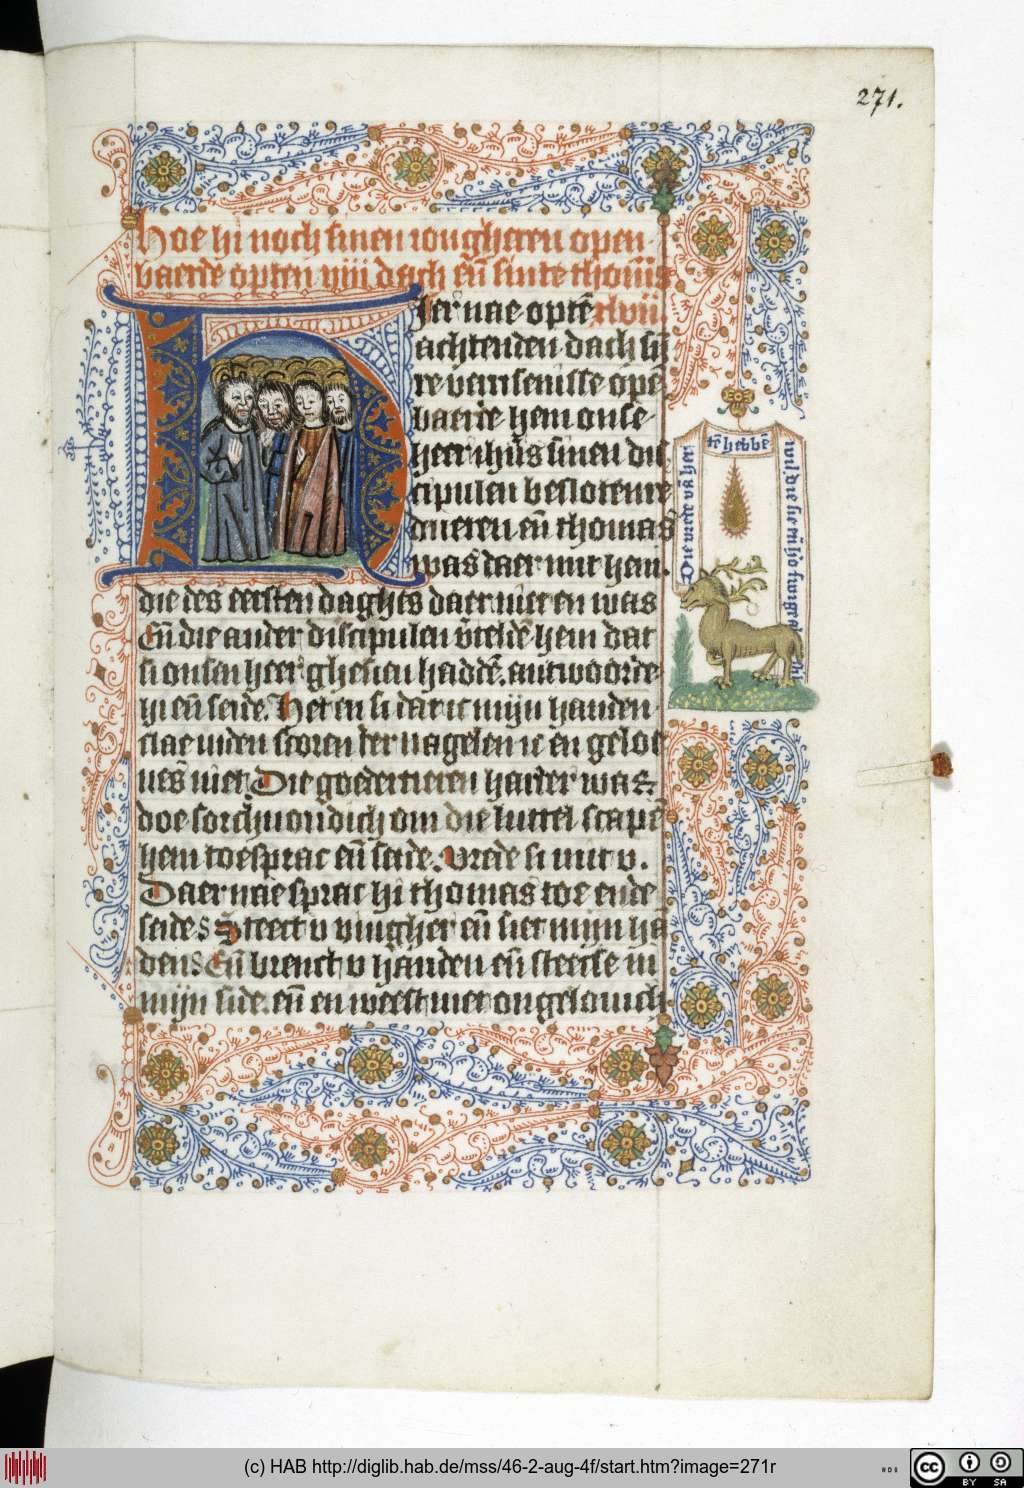 271.
Hoe hi noch sinen iongheren open
baerde opten viii dach eñ sinte thom̄s
Hier nae optē xlvii.
achtenden dach sij̄
re verrisenisse opē
baerde hem onse
heer ihūs sinen dis
cipulen beslotenre
dueren eñ thomas
was daer mit hem.
die des eersten daghes daer niet en was
Eñ die ander discipulen v̄teldē hem dat
si onsen heer ghesien haddē. antwoorde
hi eñ seide. Het en si dat ic mijn handen
slae inden scoren der nagelen ic en geloe
uēs niet. Die goedertieren harder was
doe sorchuondich om die luttel scapē
hem toesprac eñ seide. Vrede si mit v.
Daer nae sprac hi thomas toe ende
seide Steect v vingher eñ siet mijn hā
den. Eñ brenct v handen eñ steecse in
mijn side. eñ en weest niet ongelouich
Die vrede vā her
tē hebbē
wil. die sie eñ hō swige
(c) HAB http://diglib.hab.de/mss/46-2-aug-4f/start.htm?image=271r
HAB
cc
BY SA